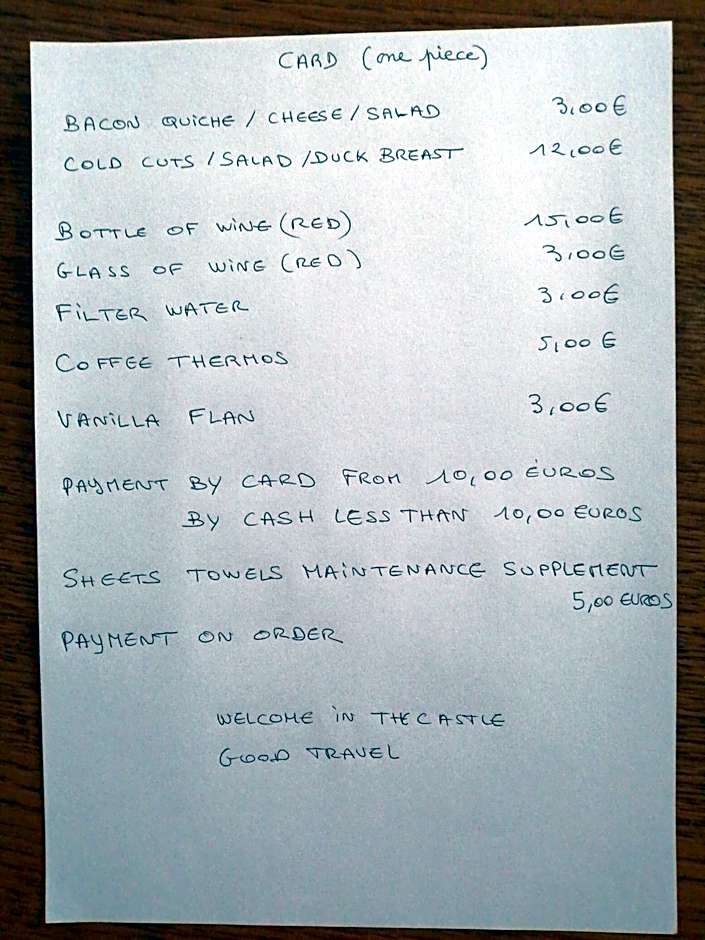 CARD (one piece)
BACON QUICHE / CHEESE / SALAD 3,00€
COLD CUTS / SALAD / DUCK BREAST 12,00€
BOTTLE OF WINE (RED) 15,00€
GLASS OF WINE (RED) 3,00€
FILTER WATER 3,00€
COFFEE THERMOS 5,00 €
VANILLA FLAN 3,00€
PAYMENT BY CARD FROM 10,00 EUROS
BY CASH LESS THAN 10,00 EUROS
SHEETS TOWELS MAINTENANCE SUPPLEMENT
5,00 EUROS
PAYMENT ON ORDER
WELCOME IN THE CASTLE
GOOD TRAVEL